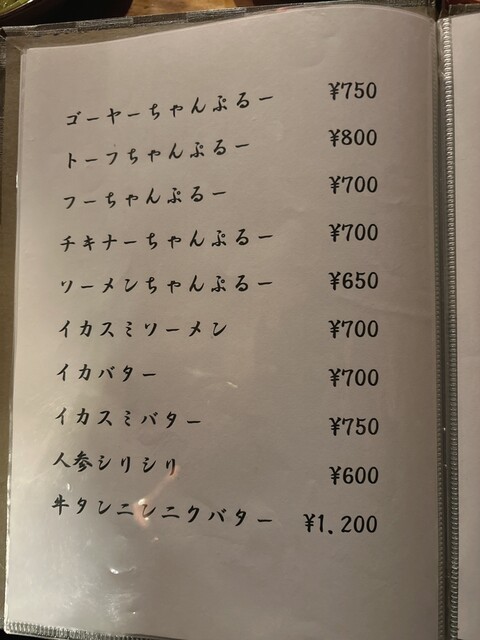 ゴーヤーちゃんぷるー ¥750
トーフちゃんぷるー ¥800
フーちゃんぷるー ¥700
チキナーちゃんぷるー ¥700
ソーメンちゃんぷるー ¥650
イカスミソーメン ¥700
イカバター ¥700
イカスミバター ¥750
人参シリシリ ¥600
牛タンニンニクバター ¥1,200